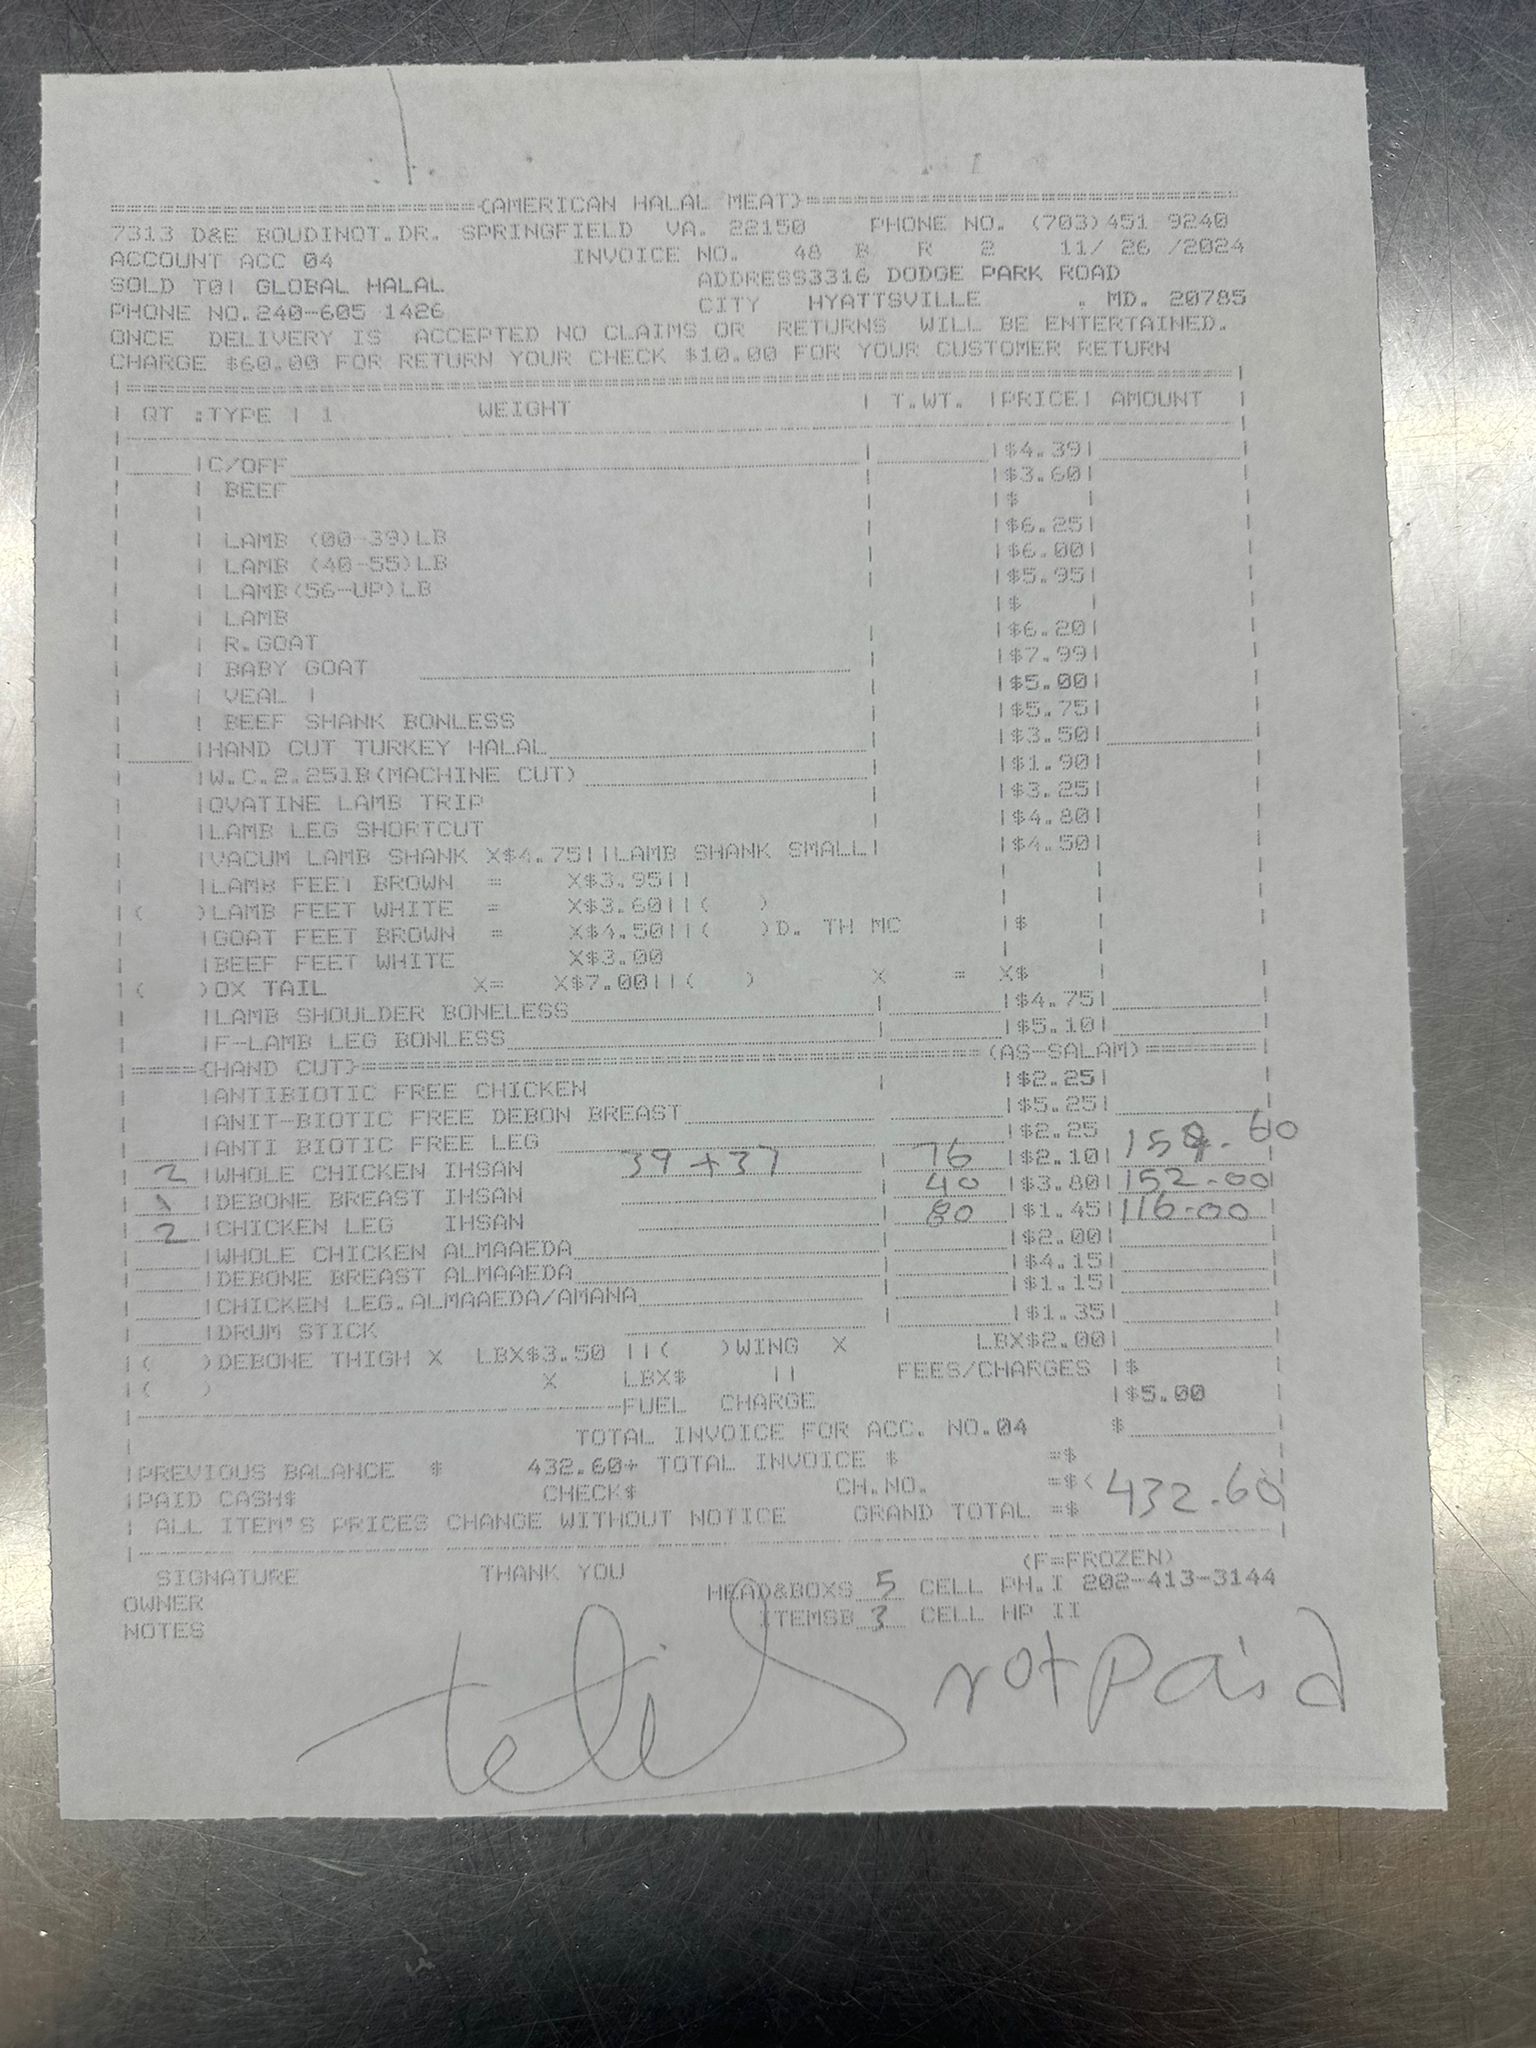 (AMERICAN HALAL MEAT)
7313 D&E BOUDINOT.DR. SPRINGFIELD VA. 22150 PHONE NO. (703)451-9240
ACCOUNT ACC 04 INVOICE NO. 48 B R 2 11/ 26 /2024
SOLD TO| GLOBAL HALAL ADDRESS3316 DODGE PARK ROAD
PHONE NO.240-605 1426 CITY HYATTSVILLE . MD. 20785
ONCE DELIVERY IS ACCEPTED NO CLAIMS OR RETURNS WILL BE ENTERTAINED.
CHARGE $60.00 FOR RETURN YOUR CHECK $10.00 FOR YOUR CUSTOMER RETURN
QT :TYPE | 1 WEIGHT | T.WT. |PRICE| AMOUNT
|C/OFF |$4.39|
| BEEF |$3.60|
| |$ |
| LAMB (00-39)LB |$6.25|
| LAMB (40-55)LB |$6.00|
| LAMB(56-UP)LB |$5.95|
| LAMB |$ |
| R.GOAT |$6.20|
| BABY GOAT |$7.99|
| VEAL | |$5.00|
| BEEF SHANK BONLESS |$5.75|
|HAND CUT TURKEY HALAL |$3.50|
|W.C.2.25lB(MACHINE CUT) |$1.90|
|OVATINE LAMB TRIP |$3.25|
|LAMB LEG SHORTCUT |$4.80|
|VACUM LAMB SHANK X$4.75||LAMB SHANK SMALL| |$4.50|
|LAMB FEET BROWN = X$3.95||
|( )LAMB FEET WHITE = X$3.60||( )
|GOAT FEET BROWN = X$4.50||( )D. TH MC |$
|BEEF FEET WHITE X$3.00
|( )OX TAIL X= X$7.00||( ) X = X$
|LAMB SHOULDER BONELESS |$4.75|
|F-LAMB LEG BONLESS |$5.10|
(HAND CUT) (AS-SALAM)
|ANTIBIOTIC FREE CHICKEN |$2.25|
|ANIT-BIOTIC FREE DEBON BREAST |$5.25|
|ANTI BIOTIC FREE LEG |$2.25
2 |WHOLE CHICKEN IHSAN 39+37 76 |$2.10| 159.60
1 |DEBONE BREAST IHSAN 40 |$3.80| 152.00
2 |CHICKEN LEG IHSAN 80 |$1.45| 116.00
|WHOLE CHICKEN ALMAAEDA |$2.00|
|DEBONE BREAST ALMAAEDA |$4.15|
|CHICKEN LEG.ALMAAEDA/AMANA |$1.15|
|DRUM STICK |$1.35|
|( )DEBONE THIGH X LBX$3.50 ||( )WING X LBX$2.00|
|( ) X LBX$ || FEES/CHARGES |$
FUEL CHARGE |$5.00
TOTAL INVOICE FOR ACC. NO.04 $
|PREVIOUS BALANCE $ 432.60+ TOTAL INVOICE $ =$
|PAID CASH$ CHECK$ CH.NO. =$<
| ALL ITEM'S PRICES CHANGE WITHOUT NOTICE GRAND TOTAL =$ 432.60
(F=FROZEN)
SIGNATURE THANK YOU HEAD&BOXS 5 CELL PH.I 202-413-3144
OWNER ITEMSB 3 CELL HP II
NOTES
not paid